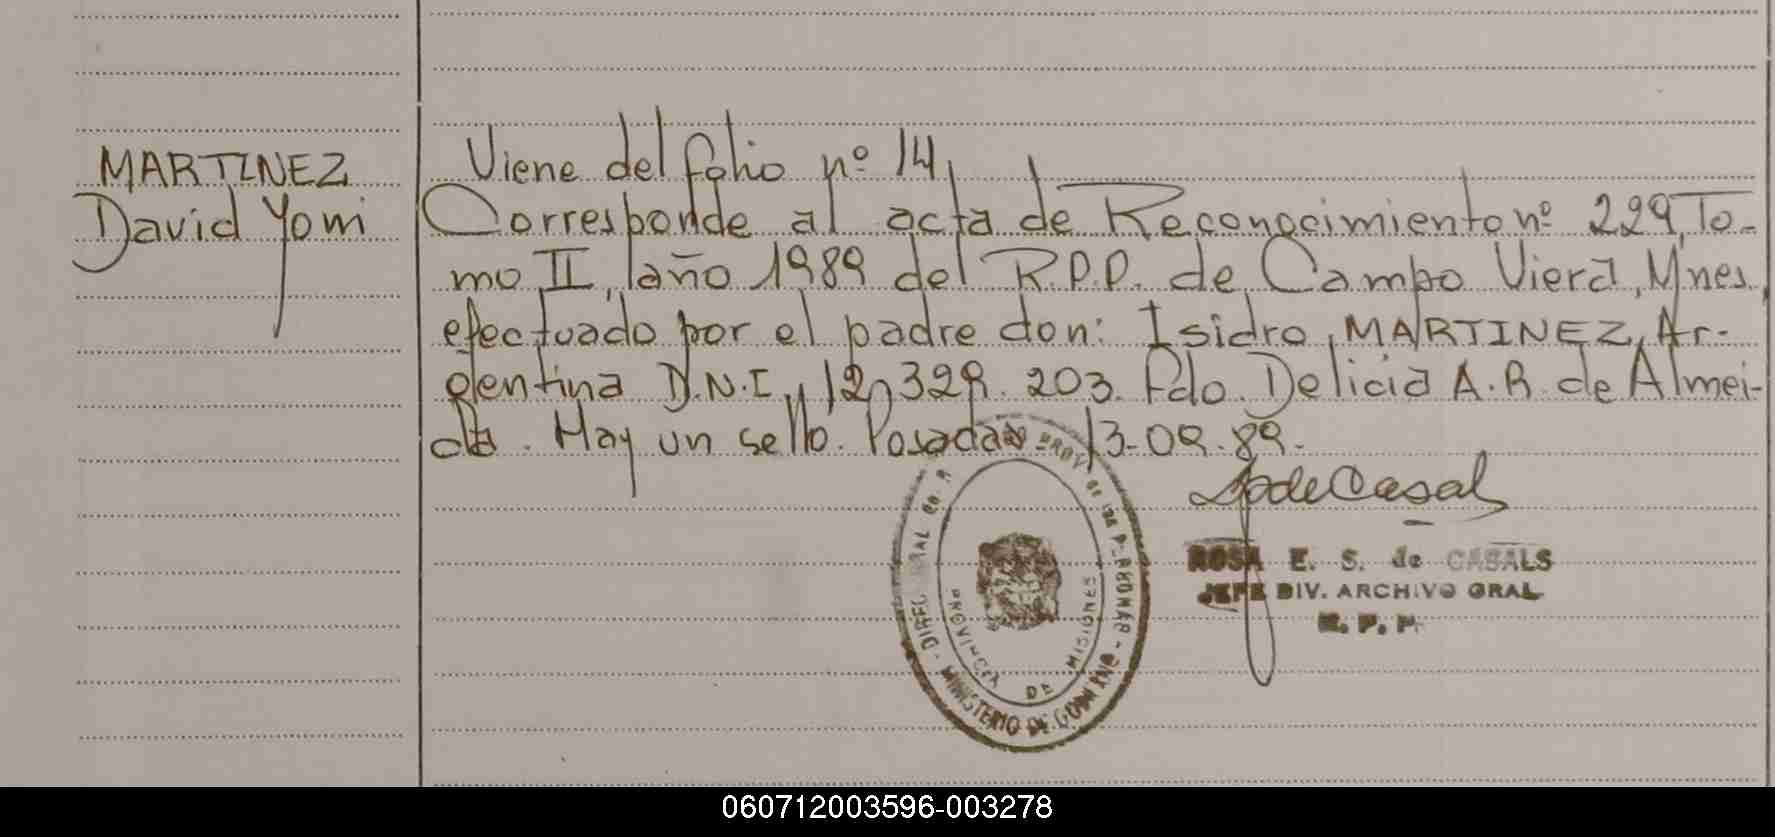 MARTINEZ
David Yoni
Viene del folio nº 14,
Corresponde al acta de Reconocimiento nº 229, To-
mo II, año 1989 del R.P.P. de Campo Viera, Mnes.,
efectuado por el padre don: Isidro MARTINEZ, Ar-
gentina D.N.I. 12.329.203. Fdo. Delicia A.R. de Almei-
da. Hay un sello. Posadas 13-09-89.
ROSA E. S. de CASALS
JEFE DIV. ARCHIVO GRAL
R. P. P.
PROVINCIA DE MISIONES
MINISTERIO DE GOBIERNO
060712003596-003278